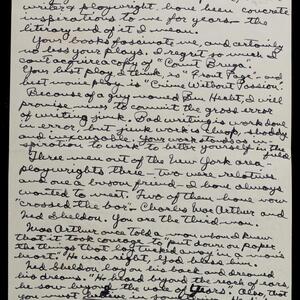 writer & playwright, have been concrete
inspirations to me for years — the
literary end of it I mean.
Your books fascinate me, and certainly
no less your plays. I regret so much I
can't acquire a copy of "Count Bruga".
Your best play, I think, is "Front Page" and
best movie play is "Crime Without Passion".
Because of a guy named Ben Hecht, I will
promise never to commit the gross error
of writing junk. Bad writing is work done
in error, but junk work is cheap, shoddy
and inexcusable. Your work stands in
spiration to work in better field
Three men out of the New York area —
playwrights three — two were relative
and one a known friend — I have always
wanted to meet. Two of them have now
"crossed the bar". Charles MacArthur and
Ned Sheldon. You are the third man.
MacArthur once told a man
that it took courage to "put down on paper
the things that last turned away in a man's
heart". He was right, God bless him.
Ned Sheldon, lay on his back and dreamed
his dreams. He heard beyond the roar of ears,
he saw beyond the veil of years. Also, that
you must believe in some